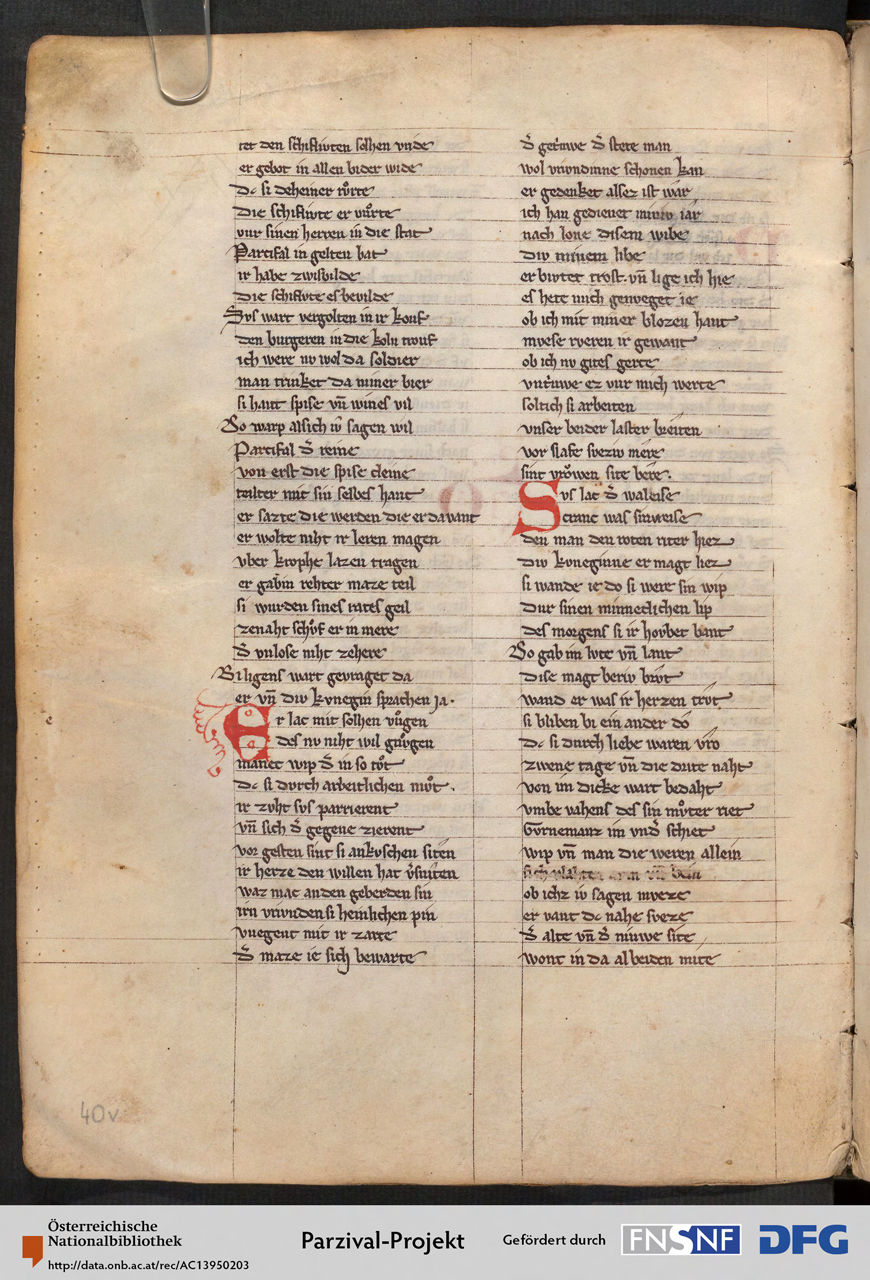 tet den schiflivten solhen vride
er gebot in allen bider wide
Dc si deheiner růrte
Die schiflivte er vůrte
vur sinen herren in die stat
Parcifal in gelten bat
ir habe zwispilde
Die schiflivte es bevilde
Svs wart vergolten in ir kouf
den burgeren in die koln trouf
ich were nv wol da soldier
man trinket da niner bier
si hant spise vn̄ wines vil
Do warp als ich iv̓ sagen wil
Parcifal d̓ reine
von erst die spise cleine
teilter mit sin selbes hant
er sazte die werden die er da vant
er wolte niht ir leren magen
vber krophe lazen tragen
er gab in rehter maze teil
si wurden sines rates geil
zenaht schůf er in mere
d̓ vnlose niht zehere
Biligens wart gevraget da
er vn̄ div kvnegin sprachen ja.
Er lac mit solhen vůgen
des nv niht wil gnůgen
manec wip d̓ in so tůt
dc si dvrch arbeitlichen můt.
ir zvht svs parrierent
vn̄ sich d̓ gegene zierent
vor gesten sint si an kvschen siten
ir herze den willen hat v̓sniten
waz mac an den geberden sin
irn vrivnden si heinlichen pin
vuegent mit ir zarte
d̓ maze ie sich bewarte
d̓ getrivwe d̓ stete man
wol vrivndinne schonen kan
er gedenket alsez ist war
ich han gedienet miniv iar
nach lone disem wibe
div minem libe
er bivtet trost. vn̄ lige ich hie
es hete mich genveget ie
ob ich mit miner blozen hant
mvese rveren ir gewant
ob ich nv gites gerte
vntrivwe ez vur mich werte
soltich si arbeiten
vnser beider laster breiten
vor slafe sveziv mere
sint vrŏwen site bere.
Svs lac d̓ waleise
cranc was sin vreise
den man den roten riter hiez
Div kvneginne er magt liez
si wande ie do si were sin wip
Dur sinen minneclichen lip
des morgens si ir hŏvbet bant
Do gab im lvte vn̄ lant
Dise magt beriv brvt
wand er was ir herzen trvt
si bliben bi ein ander do
dc si durch liebe waren vro
zwene tage vn̄ die drite naht
von im dicke wart bedaht
vmbe vahens des sin můter riet
Gvrnemanz im vnd̓ schiet
wip vn̄ man die weren allein
sich vlahten arm vn̄ bein
ob ichz iv sagen mveze
er vant dc nahe sveze
d̓ alte vn̄ d̓ niuwe site
wont in da al beiden mite
40v
Österreichische
Nationalbibliothek
http://data.onb.ac.at/rec/AC13950203
Parzival-Projekt
Gefördert durch
FNSNF
DFG